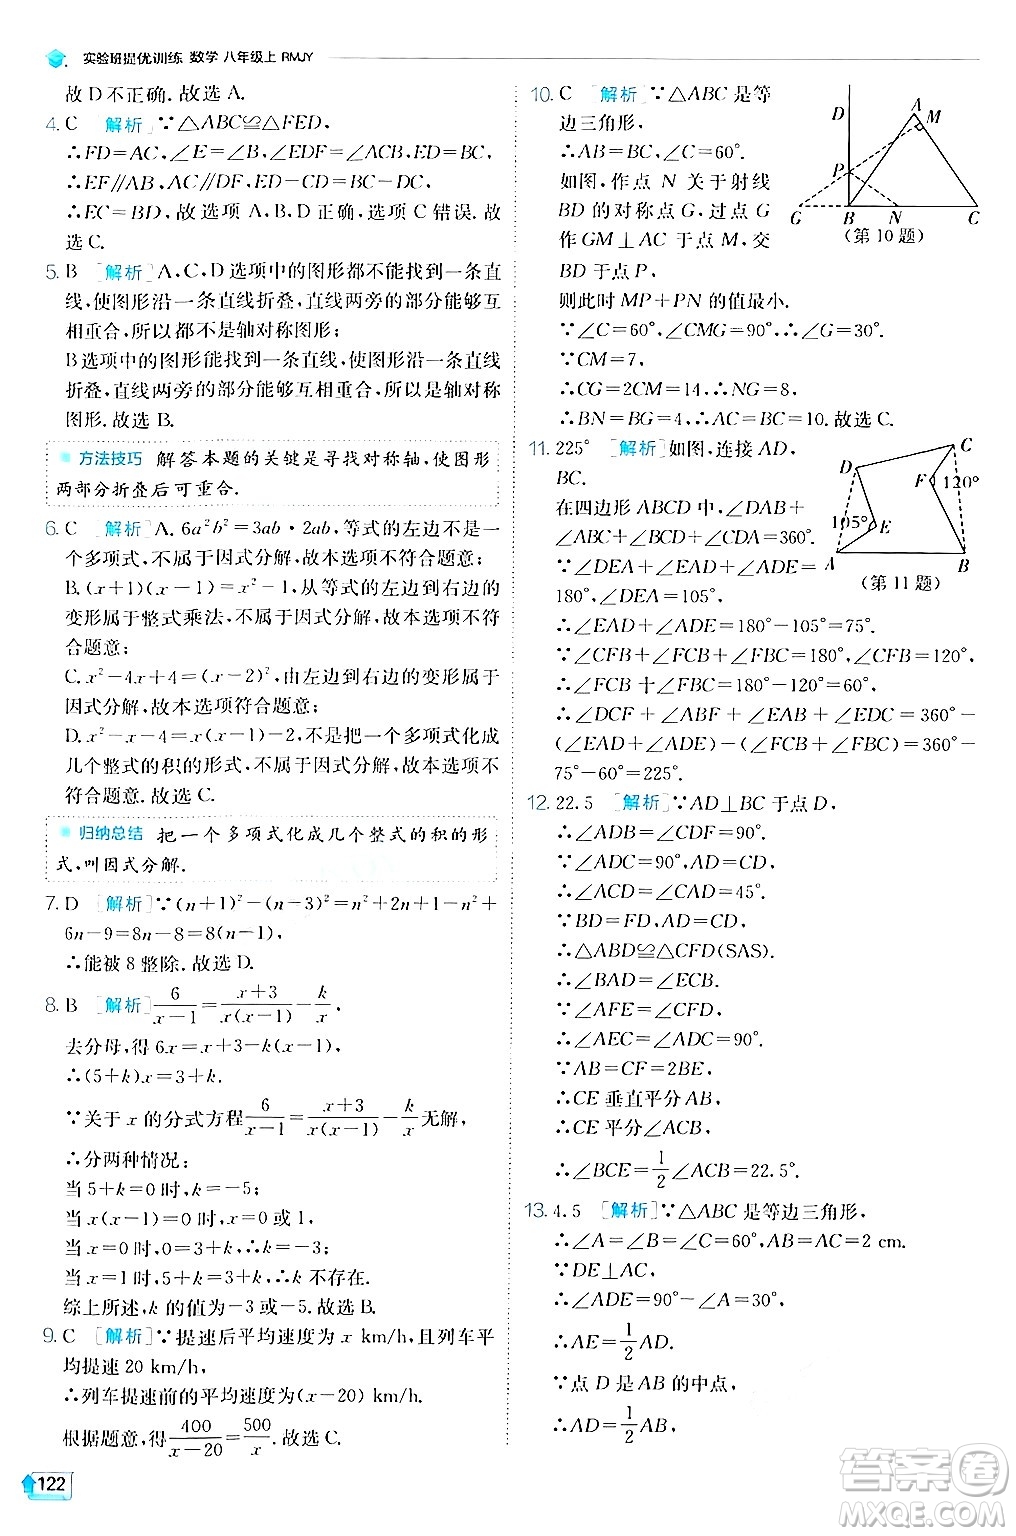 实验班提优训练 数学 八年级上 RMJY
故 D 不正确. 故选 A.
4. C [解析]∵△ABC≌△FED,
∴FD=AC,∠E=∠B,∠EDF=∠ACB,ED=BC,
∴EF∥AB,AC∥DF,ED-CD=BC-DC,
∴EC=BD,故选项 A、B、D 正确,选项 C 错误. 故选 C.
5. B [解析]A、C、D 选项中的图形都不能找到一条直
线,使图形沿一条直线折叠,直线两旁的部分能够互
相重合,所以都不是轴对称图形;
B 选项中的图形能找到一条直线,使图形沿一条直线
折叠,直线两旁的部分能够互相重合,所以是轴对称
图形. 故选 B.
方法技巧 解答本题的关键是寻找对称轴,使图形
两部分折叠后可重合.
6. C [解析]A. 6a²b²=3ab·2ab,等式的左边不是一
个多项式,不属于因式分解,故本选项不符合题意;
B. (x+1)(x-1)=x²-1,从等式的左边到右边的
变形属于整式乘法,不属于因式分解,故本选项不符
合题意;
C. x²-4x+4=(x-2)²,由左边到右边的变形属于
因式分解,故本选项符合题意;
D. x²-x-4=x(x-1)-2,不是把一个多项式化成
几个整式的积的形式,不属于因式分解,故本选项不
符合题意. 故选 C.
归纳总结 把一个多项式化成几个整式的积的形
式,叫因式分解.
7. D [解析]∵(n+1)²-(n-3)²=n²+2n+1-n²+
6n-9=8n-8=8(n-1),
∴能被 8 整除. 故选 D.
8. B [解析]6/(x-1)=(x+3)/(x(x-1))-k/x,
去分母,得 6x=x+3-k(x-1),
∴(5+k)x=3+k,
∵关于 x 的分式方程6/(x-1)=(x+3)/(x(x-1))-k/x无解,
∴分两种情况:
当 5+k=0 时,k=-5;
当 x(x-1)=0 时,x=0或 1,
当 x=0 时,0=3+k,∴k=-3,
当 x=1 时,5+k=3+k,∴k 不存在.
综上所述,k 的值为-3 或-5. 故选 B.
9. C [解析]∵提速后平均速度为 x km/h,且列车平
均提速 20 km/h,
∴列车提速前的平均速度为(x-20) km/h.
根据题意,得400/(x-20)=500/x. 故选 C.
122
10. C [解析]∵△ABC 是等
边三角形,
∴AB=BC,∠C=60°.
如图,作点 N 关于射线
BD 的对称点 G,过点 G
作 GM⊥AC 于点 M,交
BD 于点 P,
则此时 MP+PN 的值最小.
∵∠C=60°,∠CMG=90°,∴∠G=30°.
∵CM=7,
∴CG=2CM=14,∴NG=8,
∴BN=BG=4,∴AC=BC=10. 故选 C.
D A M P G B N C
(第 10 题)
11. 225° [解析]如图,连接 AD,
BC.
在四边形 ABCD 中,∠DAB+
∠ABC+∠BCD+∠CDA=360°.
∵∠DEA+∠EAD+∠ADE=
180°,∠DEA=105°,
∴∠EAD+∠ADE=180°-105°=75°.
∵∠CFB+∠FCB+∠FBC=180°,∠CFB=120°,
∴∠FCB+∠FBC=180°-120°=60°,
∴∠DCF+∠ABF+∠EAB+∠EDC=360°-
(∠EAD+∠ADE)-(∠FCB+∠FBC)=360°-
75°-60°=225°.
C D F 120° 105° E A B
(第 11 题)
12. 22.5 [解析]∵AD⊥BC 于点 D,
∴∠ADB=∠CDF=90°.
∵∠ADC=90°,
∴∠ACD=∠CAD=45°.
∵BD=FD,AD=CD,
∴△ABD≌△CFD(SAS).
∴∠BAD=∠ECB.
∵∠AFE=∠CFD,
∴∠AEC=∠ADC=90°.
∵AB=CF=2BE,
∴CE 垂直平分 AB,
∴CE 平分∠ACB,
∴∠BCE=1/2∠ACB=22.5°.
13. 4.5 [解析]∵△ABC 是等边三角形,
∴∠A=∠B=∠C=60°,AB=AC=2 cm.
∵DE⊥AC,
∴∠ADE=90°-∠A=30°,
∴AE=1/2AD.
∵点 D 是 AB 的中点,
∴AD=1/2AB,
MXQE.COM